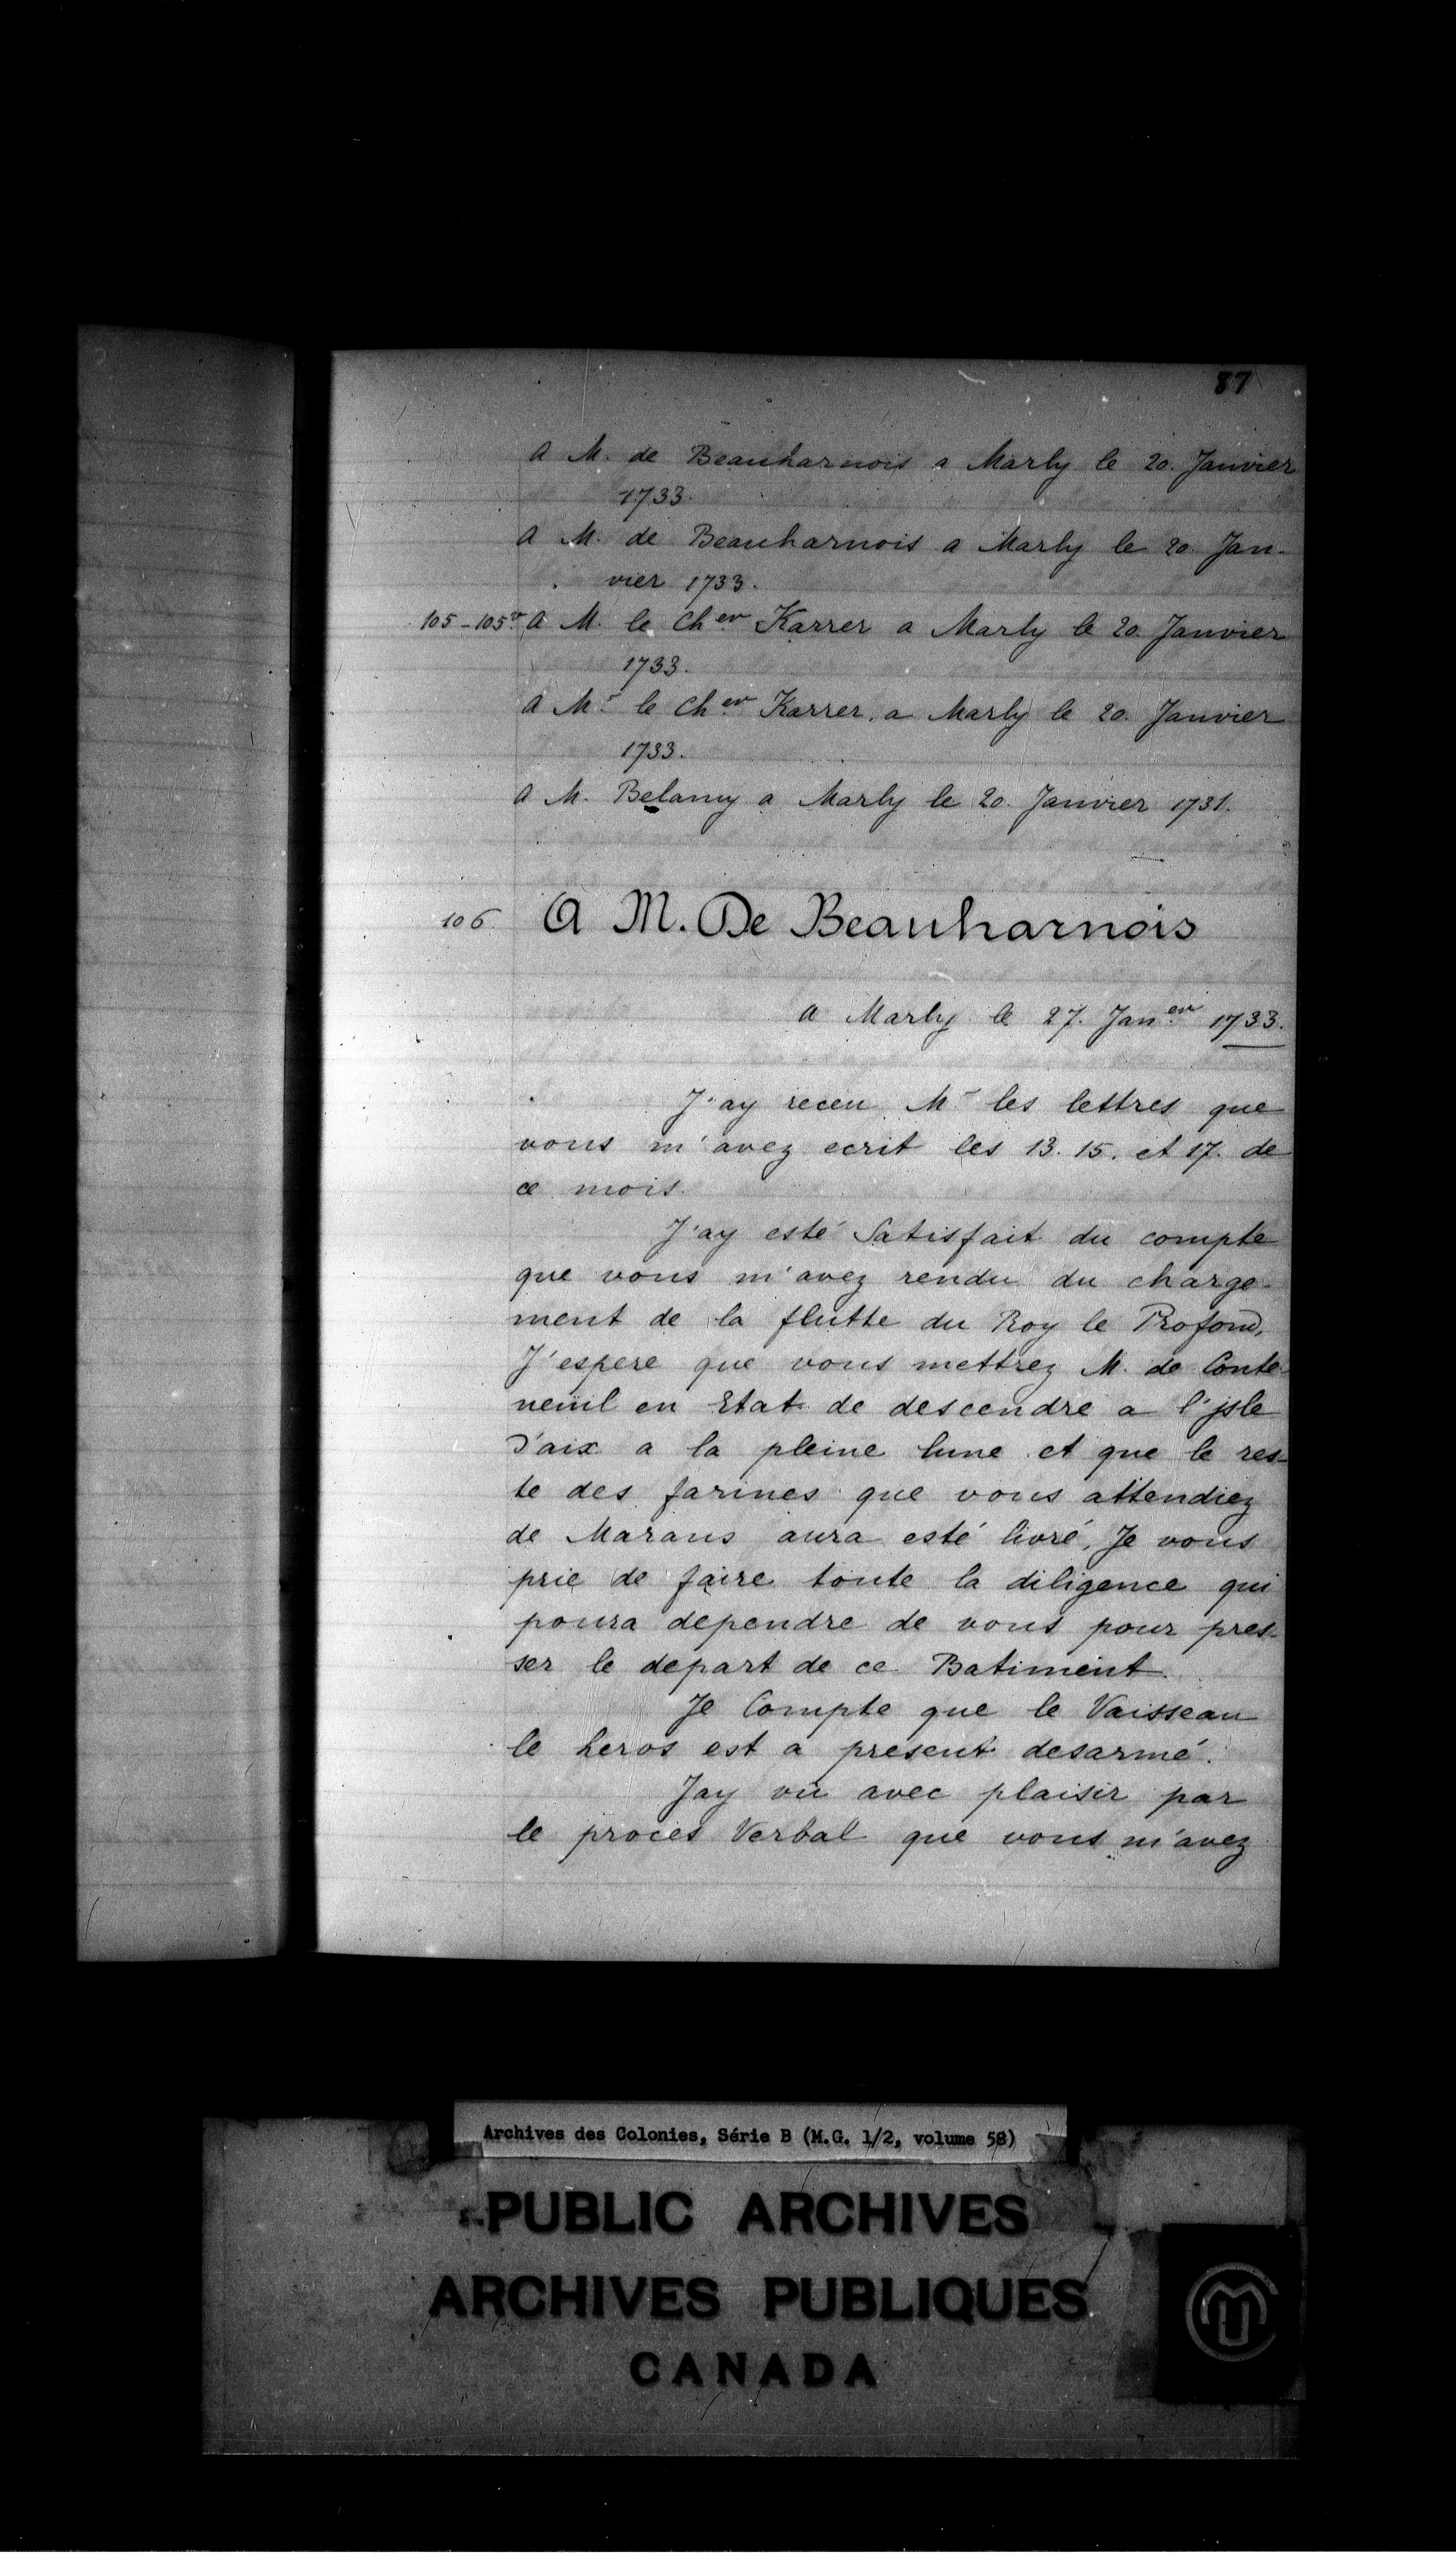 87
A M. de Beauharnois a Marly le 20. Janvier
1733.
A M. de Beauharnois a Marly le 20. Jan-
vier 1733.
105-105vo. A M. le Cher Karrer a Marly le 20. Janvier
1733.
A Mr le Cher Karrer, a Marly le 20. Janvier
1733.
A M. Belamy a Marly le 20. Janvier 1731.
106. A M. De Beauharnois
A Marly le 27. Janer 1733.
J'ay receu Mr les lettres que
vous m'avez ecrit les 13. 15. et 17. de
ce mois.
J'ay esté Satisfait du compte
que vous m'avez rendu du charge-
ment de la flutte du Roy le Profond,
J'espere que vous mettrez M. de Conte-
neüil en Etat de descendre a l'jsle
d'aix a la pleine lune et que le res-
te des farines que vous attendiez
de Marans aura esté livré, Je vous
prie de faire toute la diligence qui
poura dependre de vous pour pres-
ser le depart de ce Batiment.
Je Compte que le Vaisseau
le heros est a present desarmé.
Jay vû avec plaisir par
le procès Verbal que vous m'avez
Archives des Colonies, Série B (M.G. 1/2, volume 58)
PUBLIC ARCHIVES
ARCHIVES PUBLIQUES
CANADA